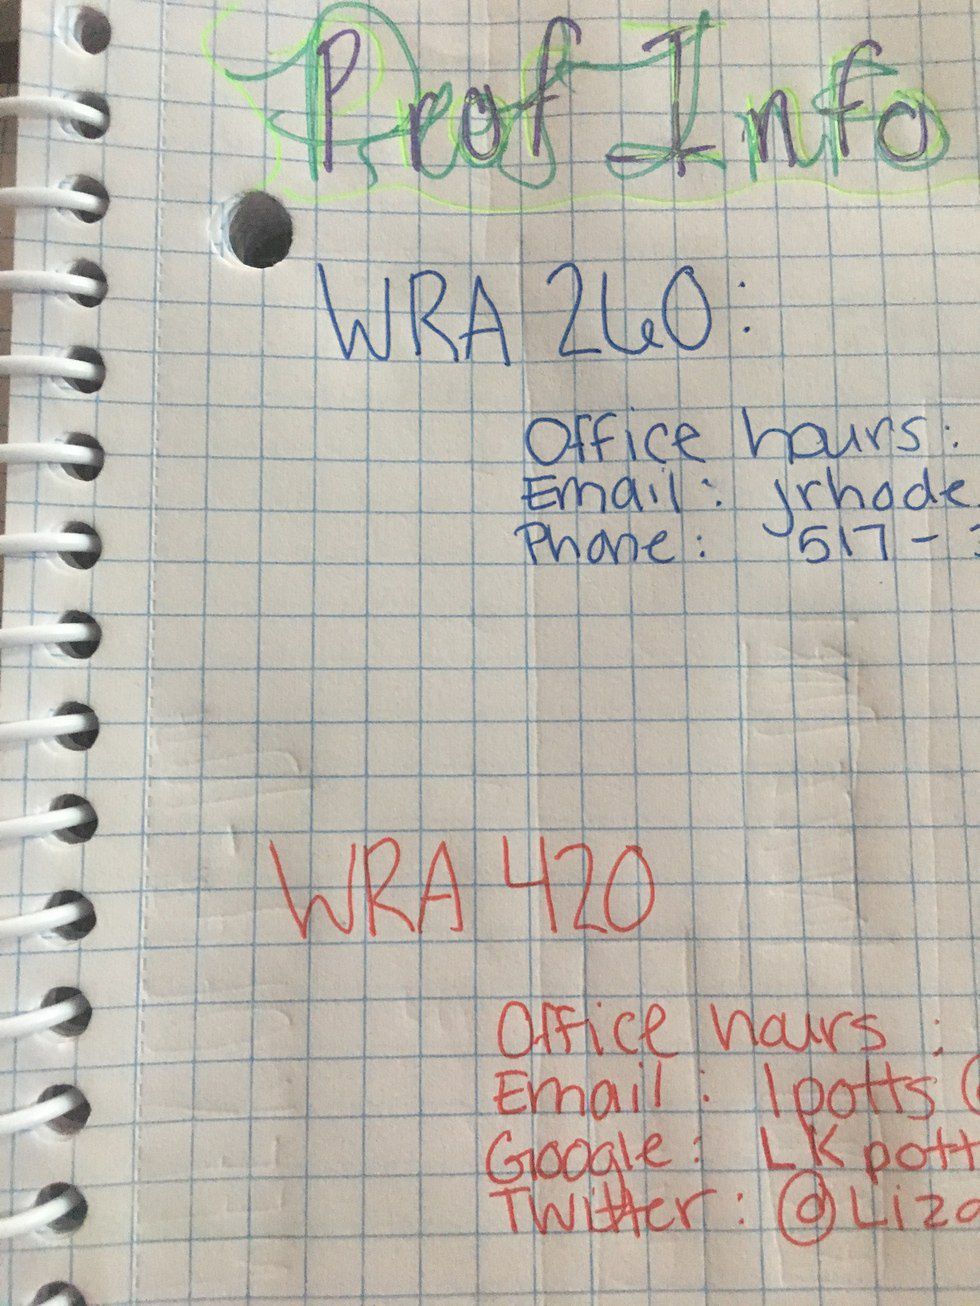 Prof Info
WRA 260:
Office hours:
Email: jrhode
Phone: 517-
WRA 420
Office hours :
Email: lpotts
Google: LKpott
Twitter: @Liza